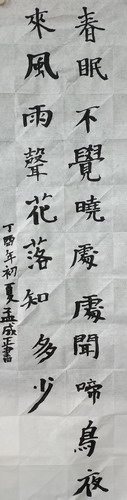 春眠不覺曉處處聞啼鳥夜
來風雨聲花落知多少
丁酉年初夏孟成正書